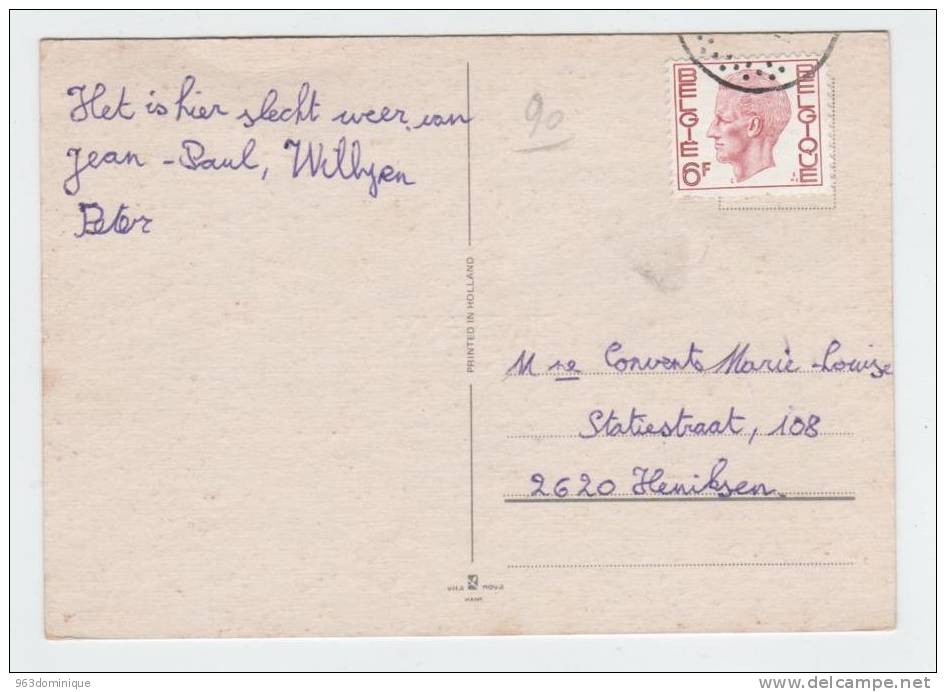 Het is hier slecht weer. van
Jean-Paul, Willy en
Peter
90
BELGIE 6F
BELGIQUE
PRINTED IN HOLLAND
Mme Convents Marie-Louise
Statiestraat, 108
2620 Hemiksen
VITA NOVA
963dominique
www.delcampe.net